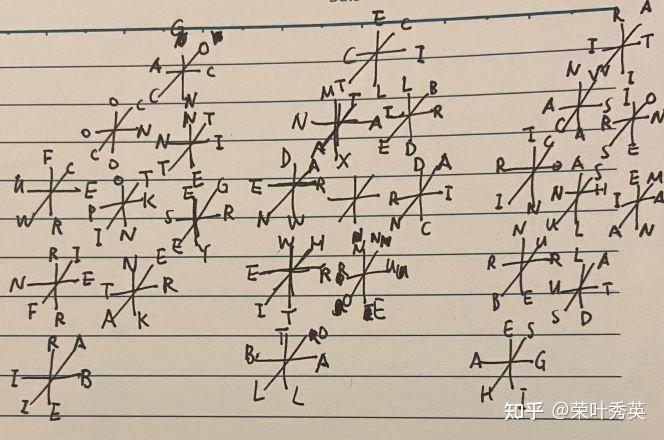 G E C R A
A O C C I I T
C N T L I
O C N T M T L B N V I O
O N N I N A I R A S R N
C O T E A X E D C A S E
F C O T E G D A D A I C A S E M
U E P K S R E R R I R O N H I A
W R I N E Y N W N C I N U L A N
R I N E W M M N N U L A
N E T R E R R U R R U T
F R A K I T O E B E S D
R A T R O E S
I B B A A G
I E L L H I
知乎 @荣叶秀英